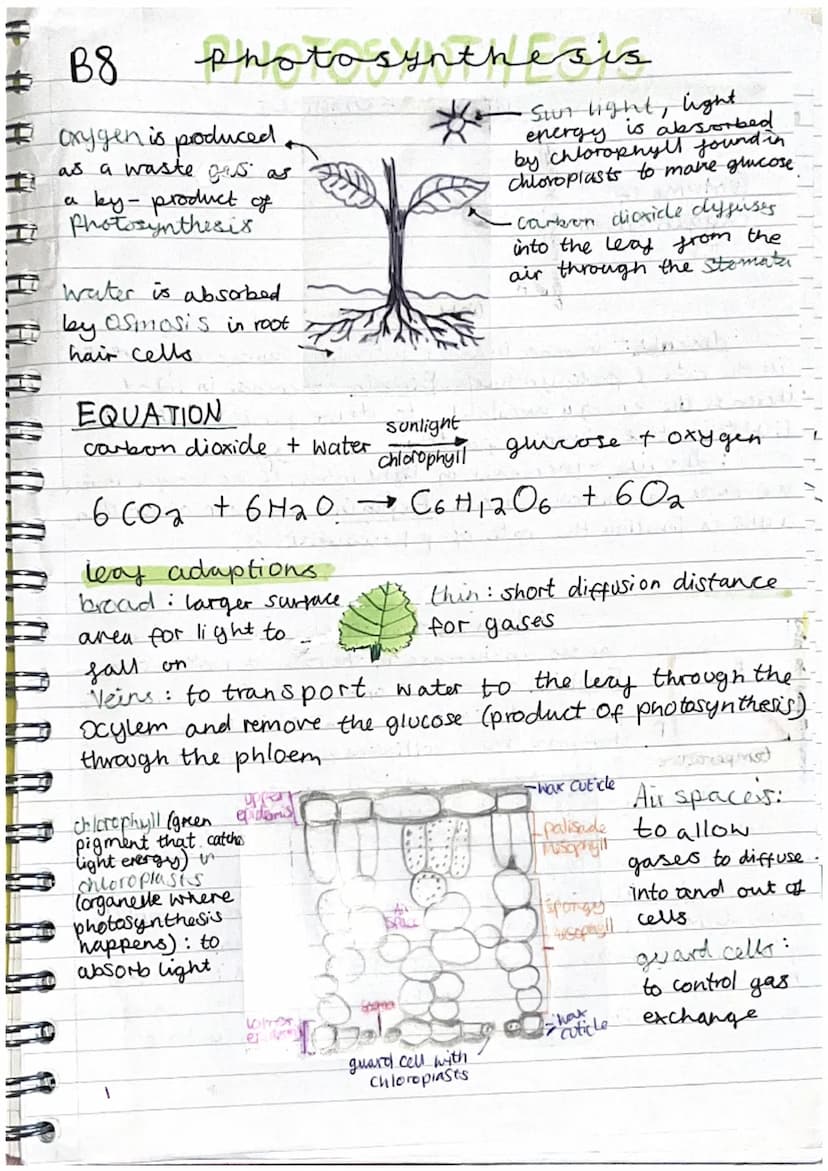 B8 Photosynthesis
PHOTOSYNTHESIS
Oxygen is produced
as a waste gas as
a by-product of
Photosynthesis
Water is absorbed
by osmosis in root
hair cells
Sun light, light
energy is absorbed
by chlorophyll found in
chloroplasts to make glucose
carbon dioxide diffuses
into the leaf from the
air through the stomata
EQUATION
carbon dioxide + water sunlight chlorophyll → glucose + oxygen
6CO2 + 6H2O → C6H12O6 + 6O2
leaf adaptions
broad : larger surface
area for light to
fall on
thin : short diffusion distance
for gases
Veins : to transport water to the leaf through the
xylem and remove the glucose (product of photosynthesis)
through the phloem
chlorophyll (green
pigment that catches
light energy) in
chloroplasts
(organelle where
photosynthesis
happens) : to
absorb light
upper
epidermis
wax cuticle
palisade
mesophyll
air
space
spongy
mesophyll
stoma
lower
wax
cuticle
guard cell with
chloroplasts
Air spaces:
to allow
gases to diffuse
into and out of
cells
guard cells :
to control gas
exchange